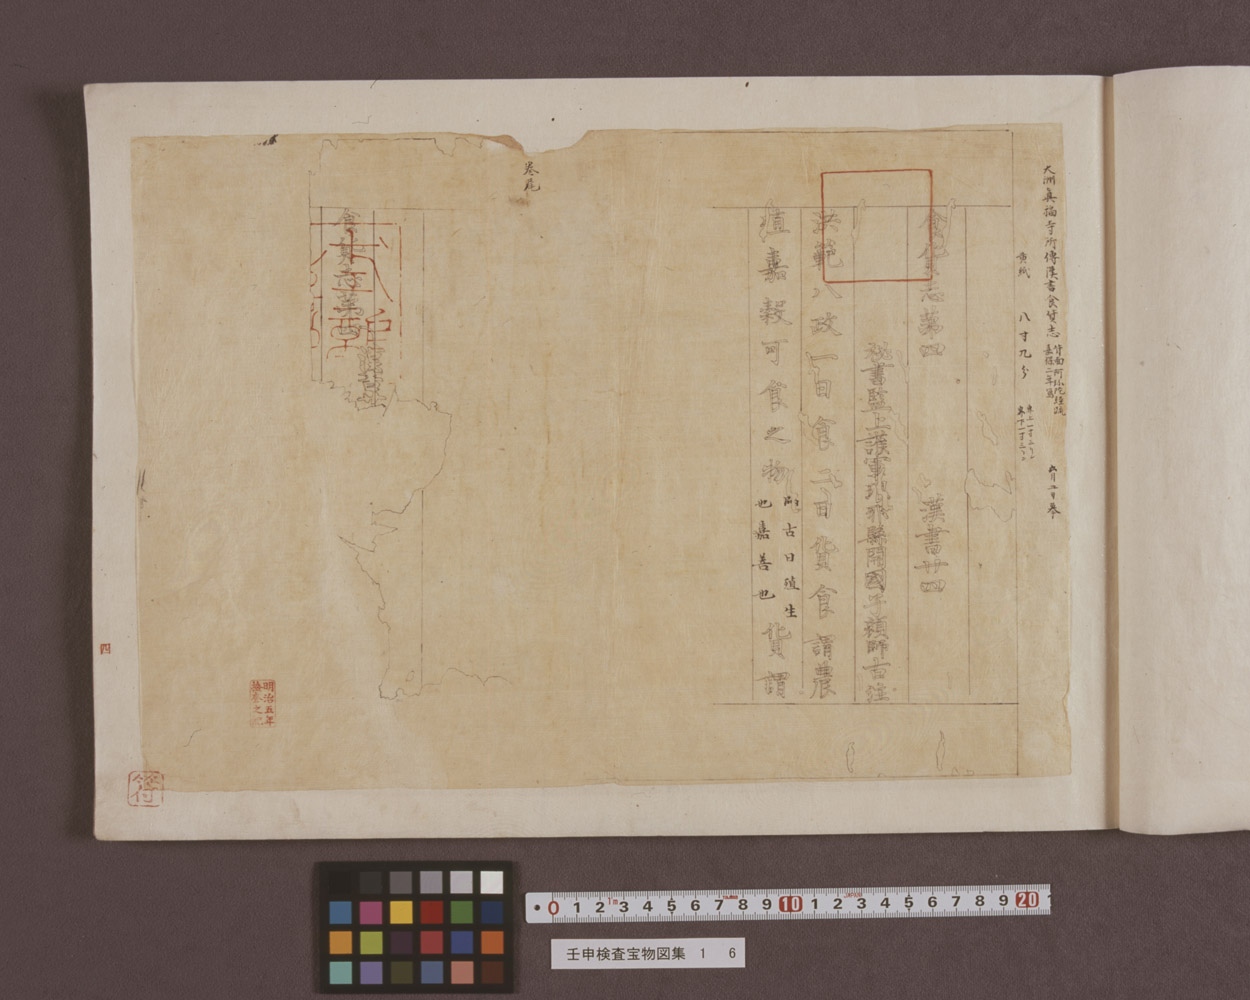 大洲真福寺所傳漢書食貨志
黄紙 八寸九分
食貨志第四 漢書廿四
秘書監上護軍琅邪縣開國子顔師古注
洪範八政一曰食二曰貨食謂農
殖嘉穀可食之物
師古曰殖生
也嘉善也
貨謂
卷尾
食貨志第四
明治五年
検査之印
四
0 1 2 3 4 5 6 7 8 9 10 1 2 3 4 5 6 7 8 9 20 1
壬申検査宝物図集 1 6